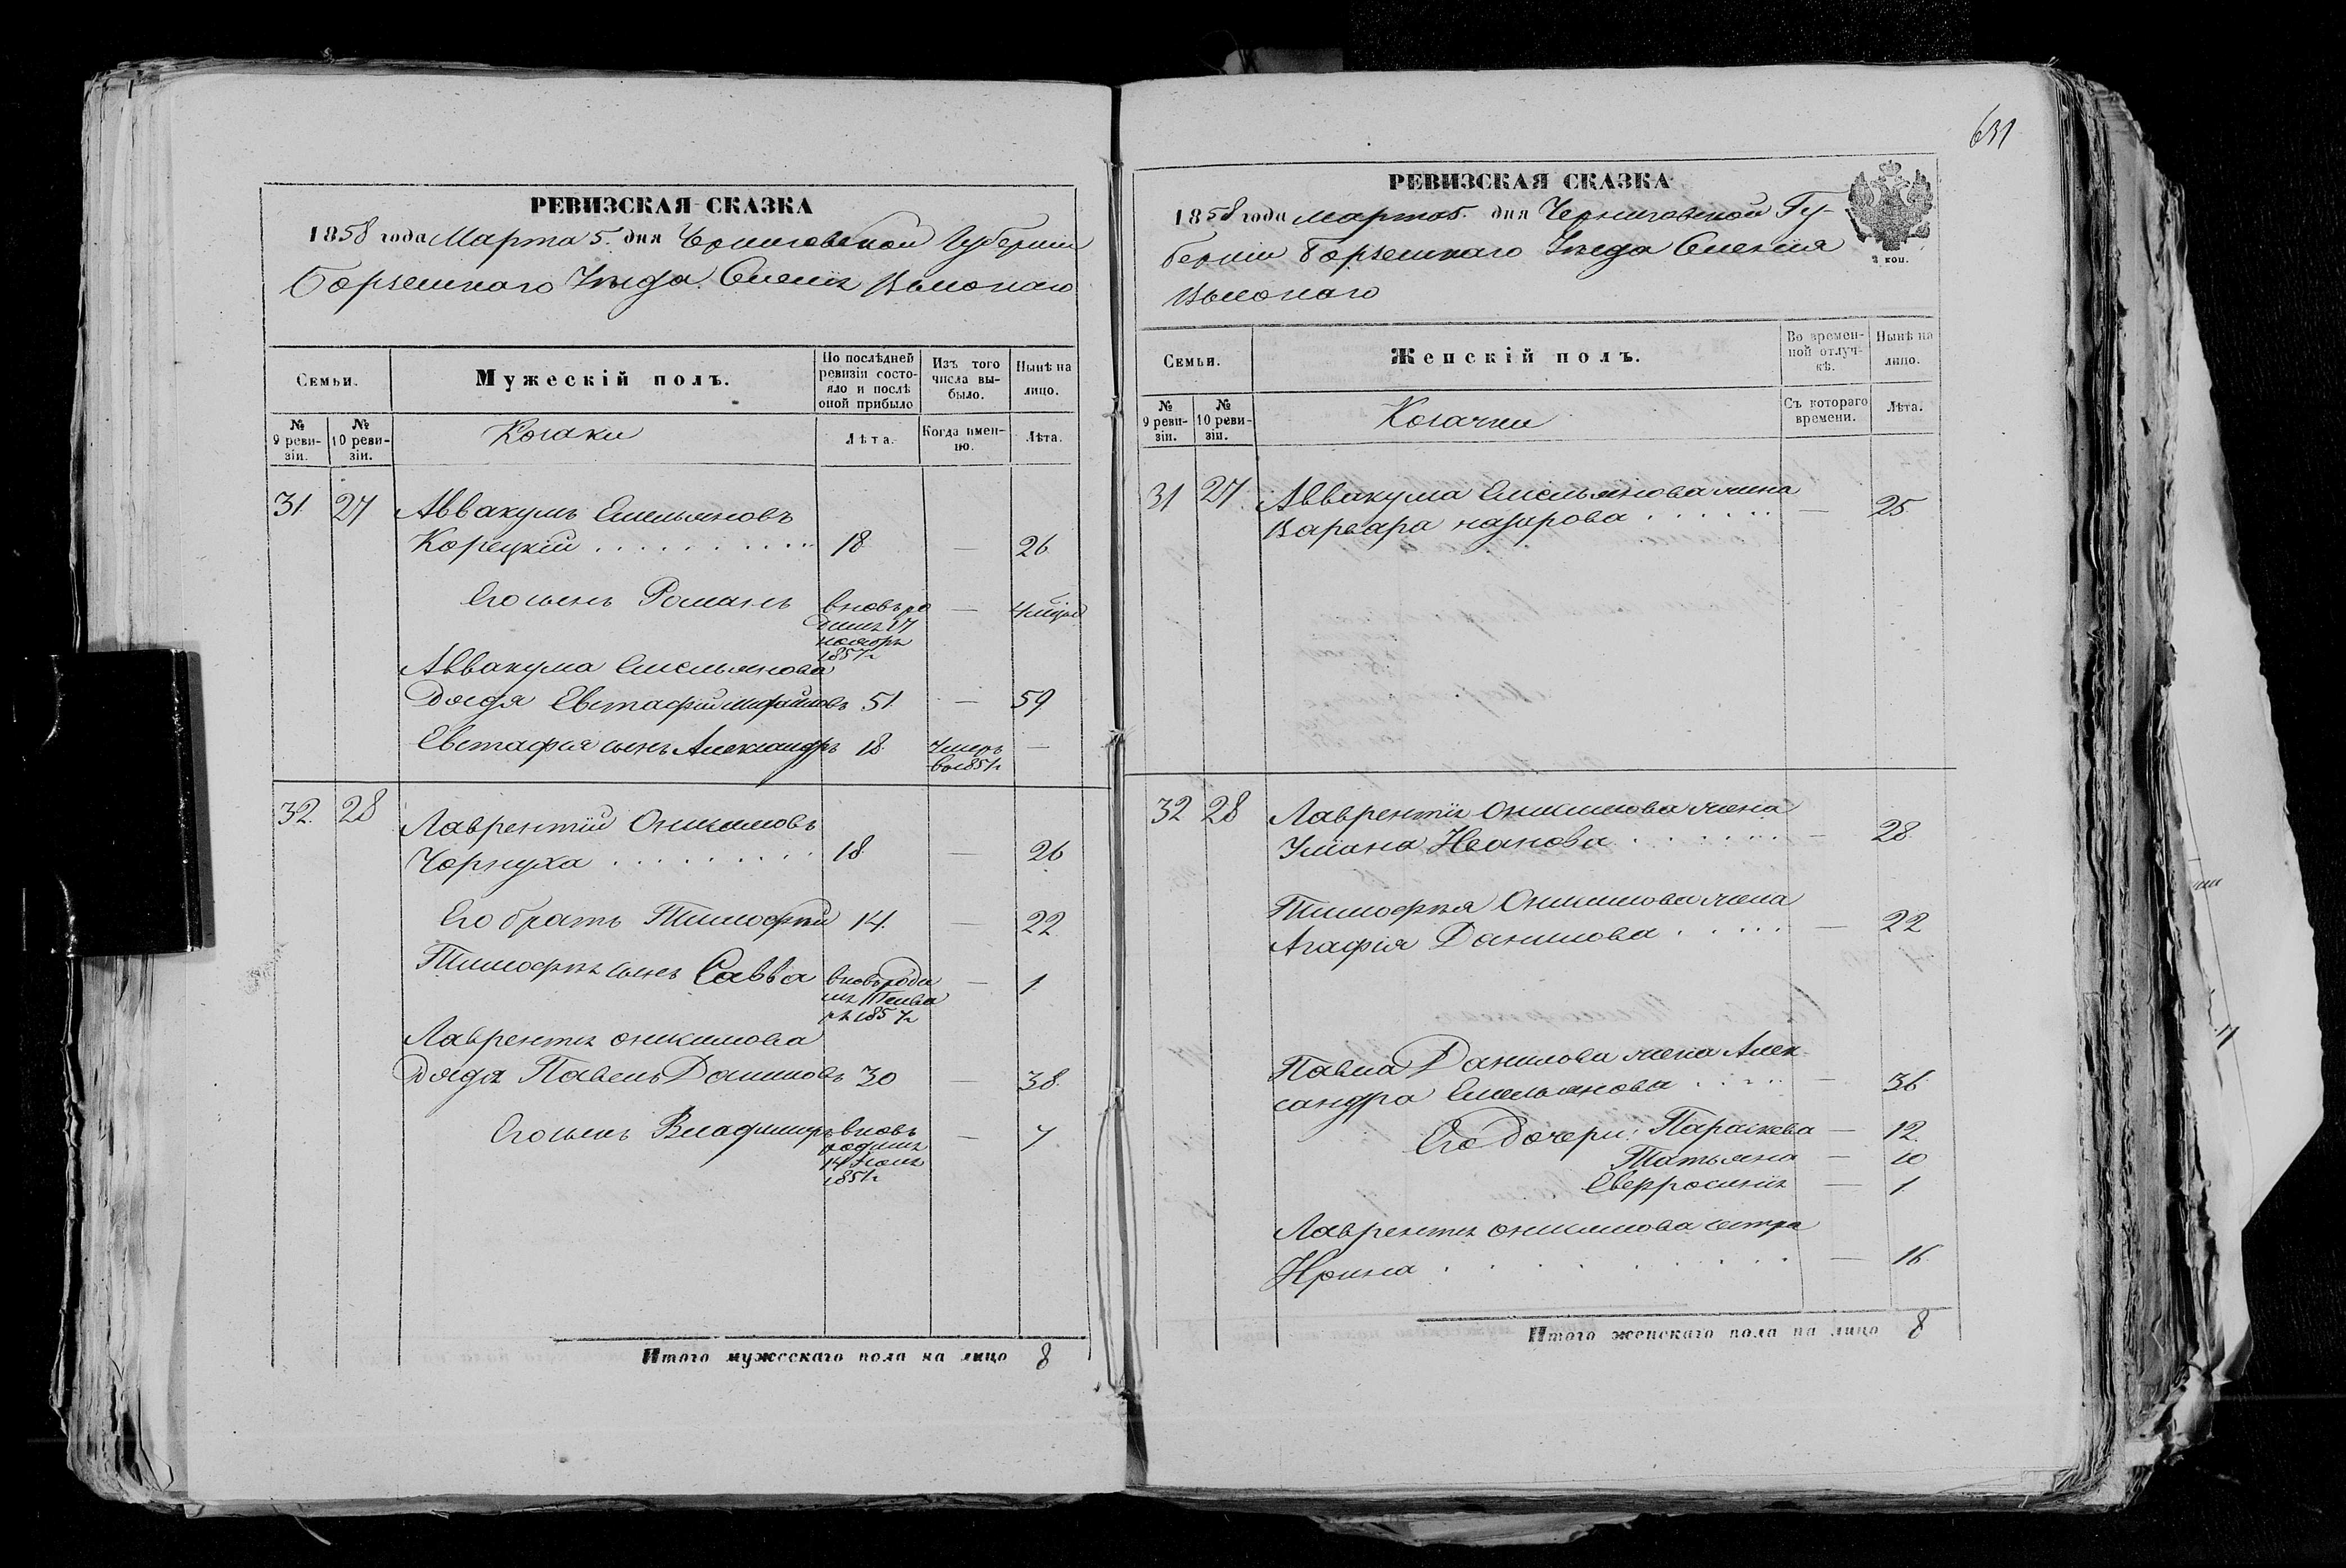 РЕВИЗСКАЯ СКАЗКА
1858 года Марта 5. дня Черниговской Губернии
Борзенского Уѣзда
Семьи.
Мужескій полъ.
По послѣдней ревизіи состояло и послѣ оной прибыло
Изъ того числа выбыло.
Нынѣ на лицо.
№ 9 ревизіи.
№ 10 ревизіи.
Козаки
Лѣта.
Когда именно.
Лѣта.
31 27 Аввакумъ Емельяновъ
Корецкій . . . . . . . . . . 18 — 26
Его сынъ Романъ вновь ро — 4 мѣсяц
дился 17
ноябр
1857 г
Аввакума Емельянова
Дядя Евстафій 51. — 59
Евстафія сынъ Александръ 18. Умеръ —
въ 1851 г
32. 28 Лаврентій Онисимовъ
Чорнуха . . . . . . . . . 18 — 26
Его братъ Тимофѣй 14. — 22
Тимофѣя сынъ Савва вновь роди — 1
лся
1857 г
Лаврентія Онисимова
Дядя Павелъ Даниловъ 30 — 38.
Его сынъ Владимиръ вновь — 7
родился
14 Іюля
1851 г
Итого мужескаго пола на лицо 8
631
РЕВИЗСКАЯ СКАЗКА
1858 года Марта 5. дня Черниговской Гу-
берніи Борзенскаго Уѣзда
2 коп.
Семьи.
Женскій полъ.
Во временной отлучкѣ.
Нынѣ на лицо.
№ 9 ревизіи.
№ 10 ревизіи.
Козачки
Съ котораго времени.
Лѣта.
31 27 Аввакума Емельянова жена
Варвара Назарова . . . . . . — 25
32 28 Лаврентія Онисимова жена
Уліана Иванова . . . . . . . — 28
Тимофѣя Онисимова жена
Агафія Данилова . . . . . — 22
Павла Данилова жена Алек-
сандра Емельянова . . . . — 36
Его дочери: Параскева — 12.
Татьяна — 10
Евфросинія — 1.
Лаврентія Онисимова сестра
Ирина . . . . . . . . . — 16
Итого женскаго пола на лицо 8